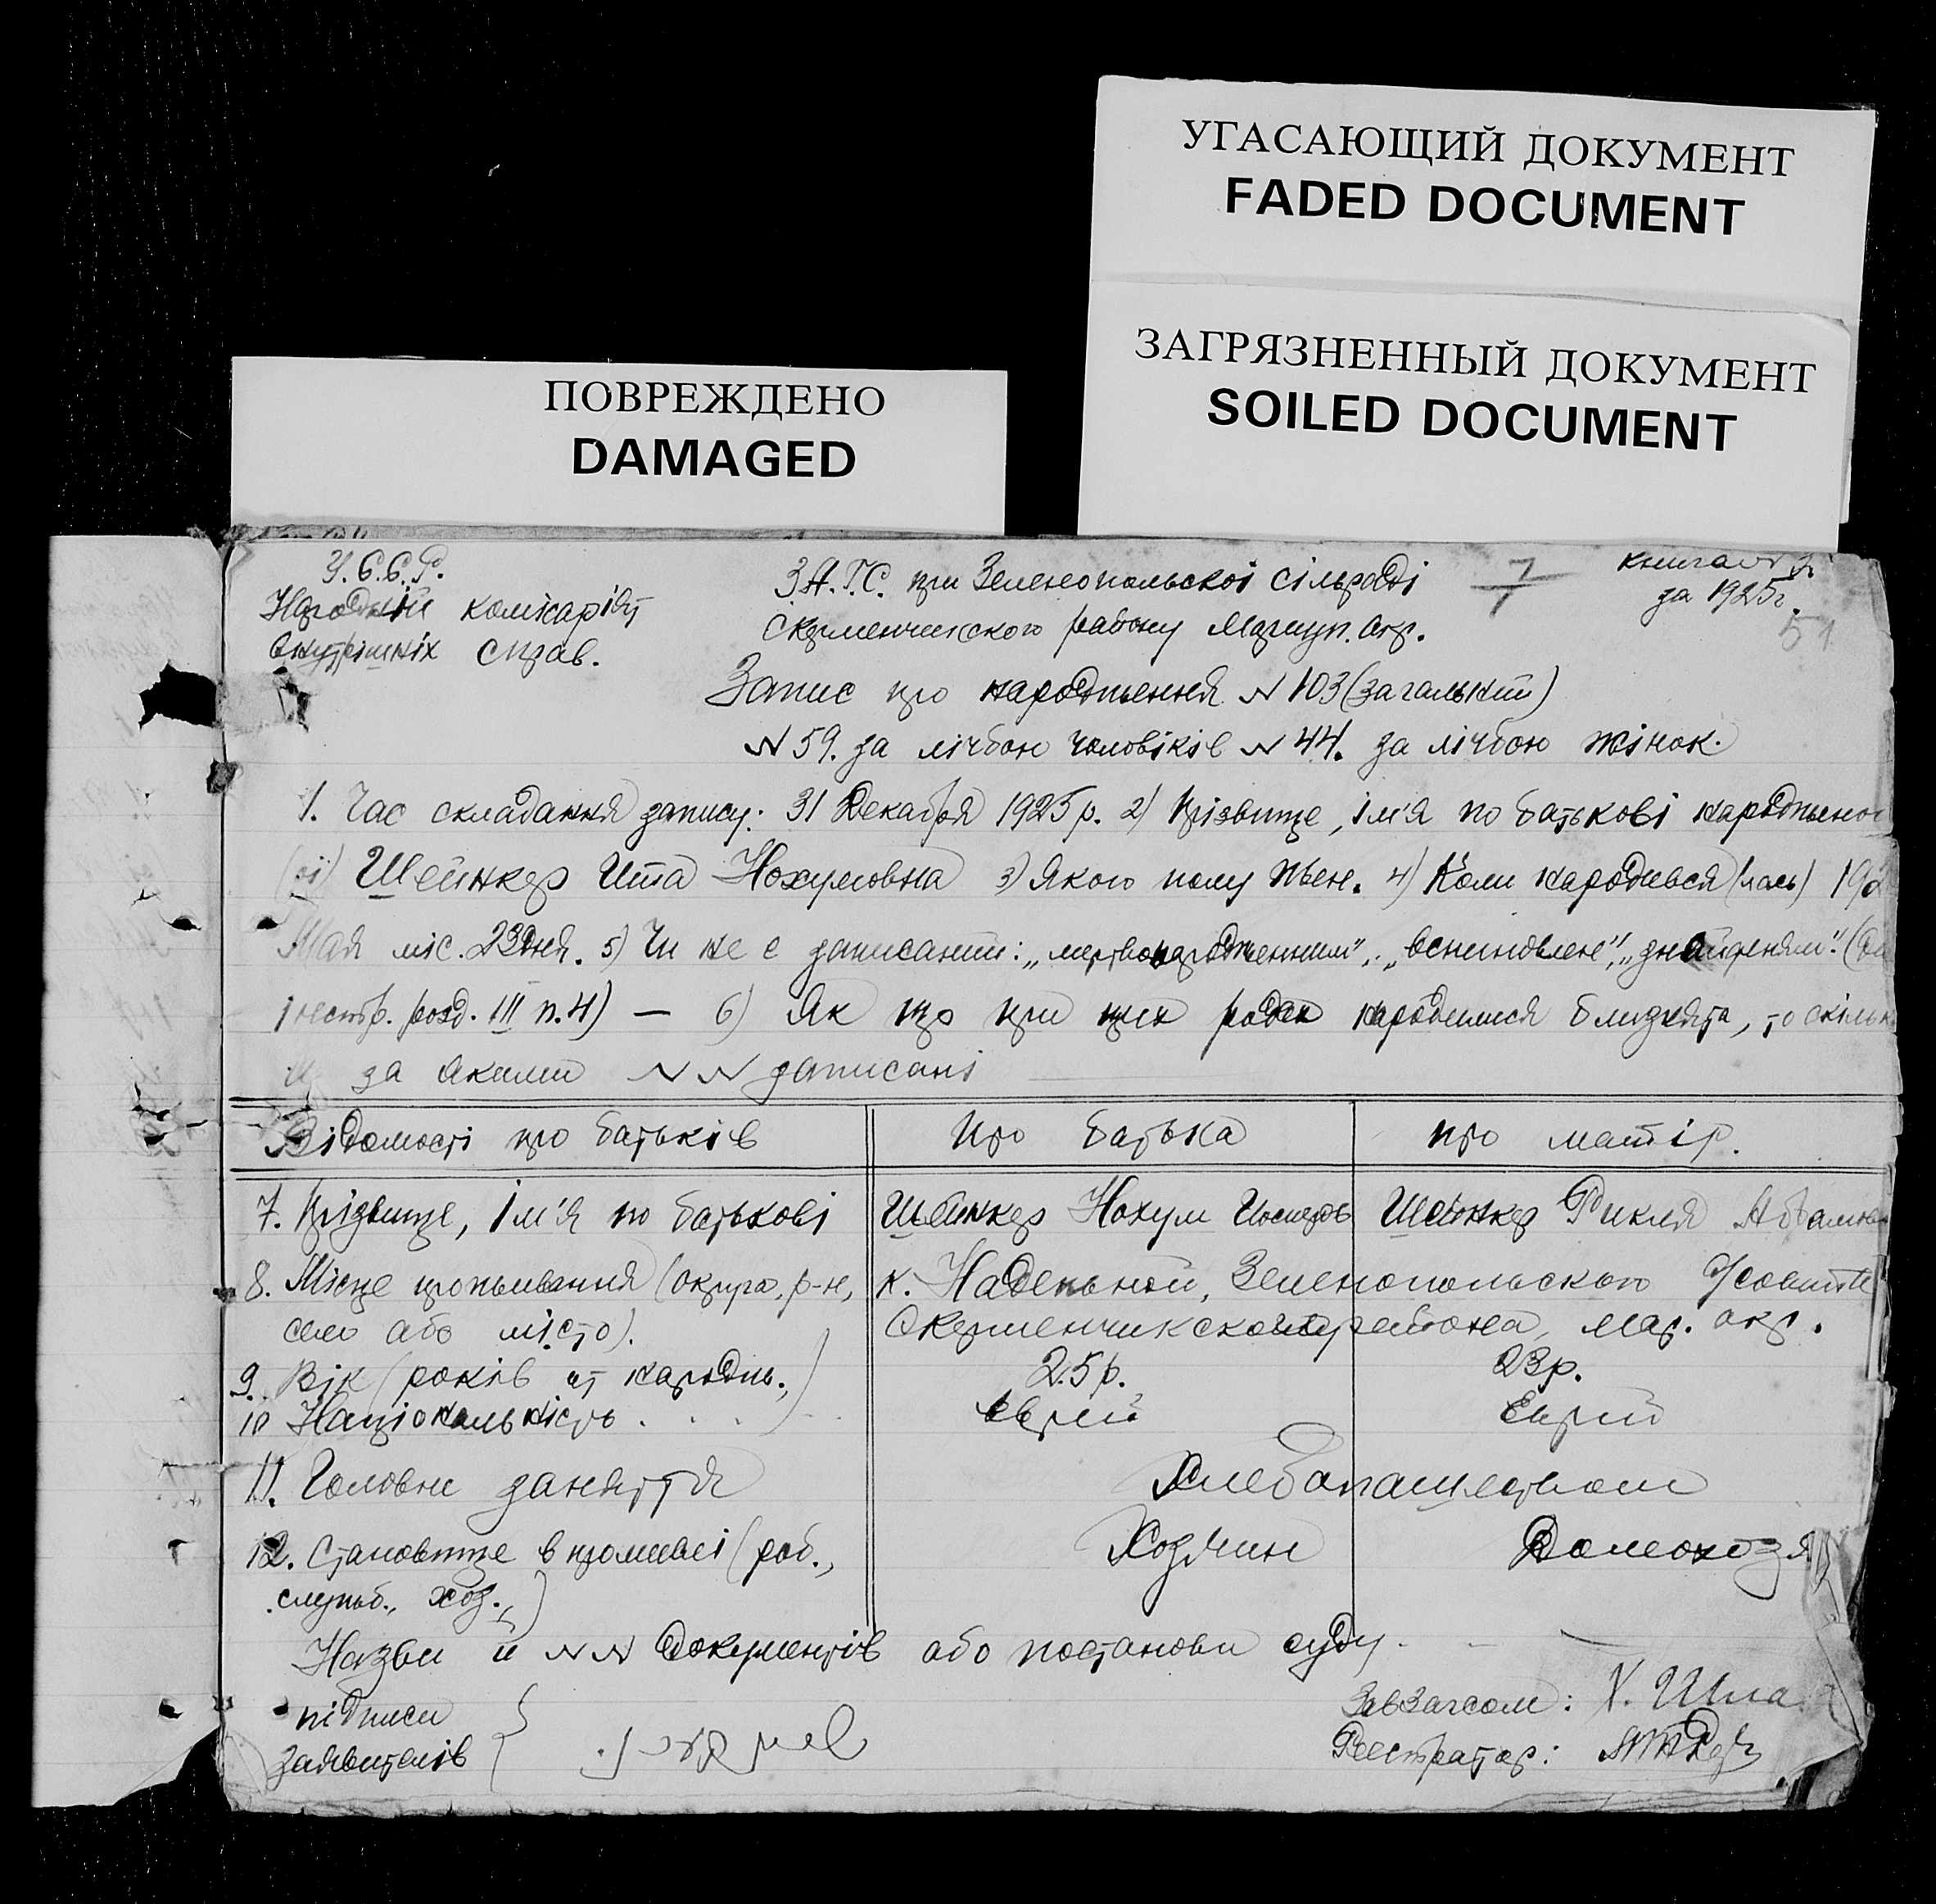 УГАСАЮЩИЙ ДОКУМЕНТ
FADED DOCUMENT
ЗАГРЯЗНЕННЫЙ ДОКУМЕНТ
SOILED DOCUMENT
ПОВРЕЖДЕНО
DAMAGED
У.С.С.Р.
Народній комісаріят
внутрішніх справ.
З.А.Г.С. при Зеленопольскої сільраді
району Маріуп. окр.
книга
за 1925г.
51
Запис про народження № 103 (загальний)
№ 59. за лічбою чоловіків № 44. за лічбою жінок.
1. Час складання запису: 31 Декабря 1925 р. 2) Прізвище, ім'я по батькові
(ої) Шейнкер Ита Нохумовна 3) Якого полу жен. 4) Коли народився (лась) 192
Мая міс. 23 дня. 5) Чи не є записаний: „мертвонародженним", „всиновлене", „знайденям".
розд. III п.4) — 6) Як що при цих родах народилися близнята, то
за якими №№ записані
Відомості про батьків
Про батька
про матір.
7. Прізвище, Ім'я по батькові
Шейнкер Нохум
Шейнкер Рикля
8. Місце проживання (округа, р-н,
село або місто).
к. Надежной, Зеленопольского
района, Мар. окр.
9. Вік (років от народж.)
25 р.
23 р.
10 Національність
Еврей
Еврей
11. Головне заняття
Хлебопашеством
12. Становище в промислі (роб.,
служб., хоз.,)
Хозяин
Домохозя
Назви й №№ документів або постанови суду
підписи
заявителів
ЗавЗагсом:
Реестратор: